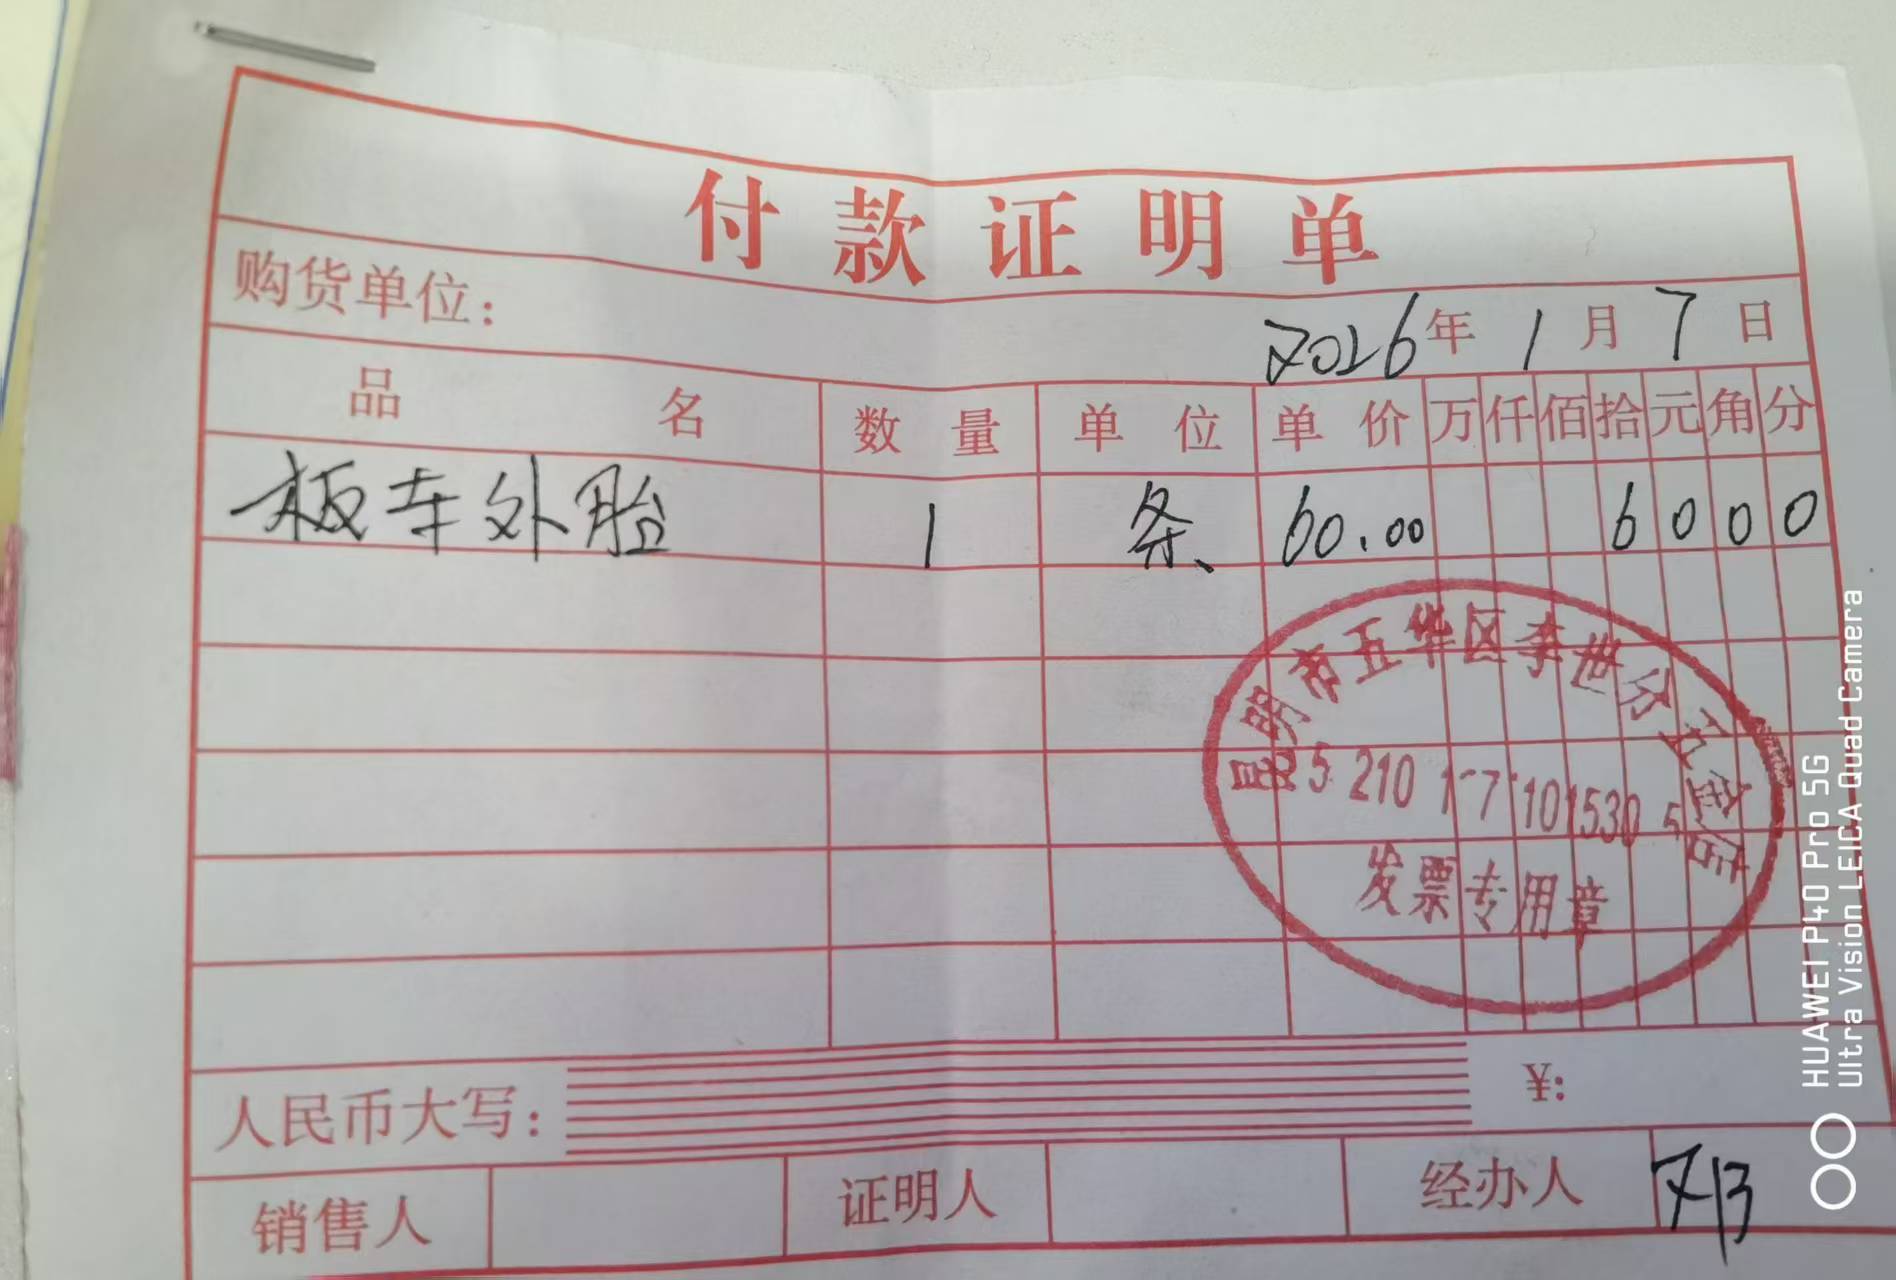 付款证明单
购货单位：
2026年1月7日
品名 数量 单位 单价 万仟佰拾元角分
板车外胎 1 条、 60.00 6000
昆明市五华区李世分五金店
5 210 1 7 10 1530 5
发票专用章
人民币大写： ¥:
销售人 证明人 经办人
HUAWEI P40 Pro 5G
Ultra Vision LEICA Quad Camera